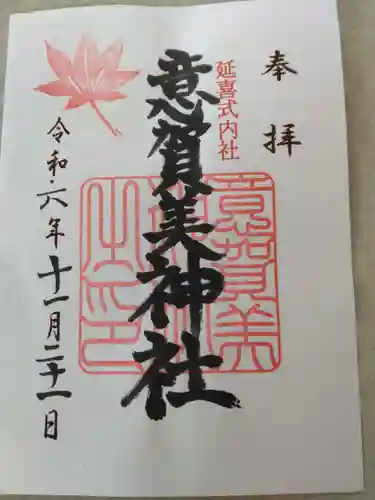 奉拝
延喜式内社
意賀美神社
令和六年十一月二十一日
意賀美